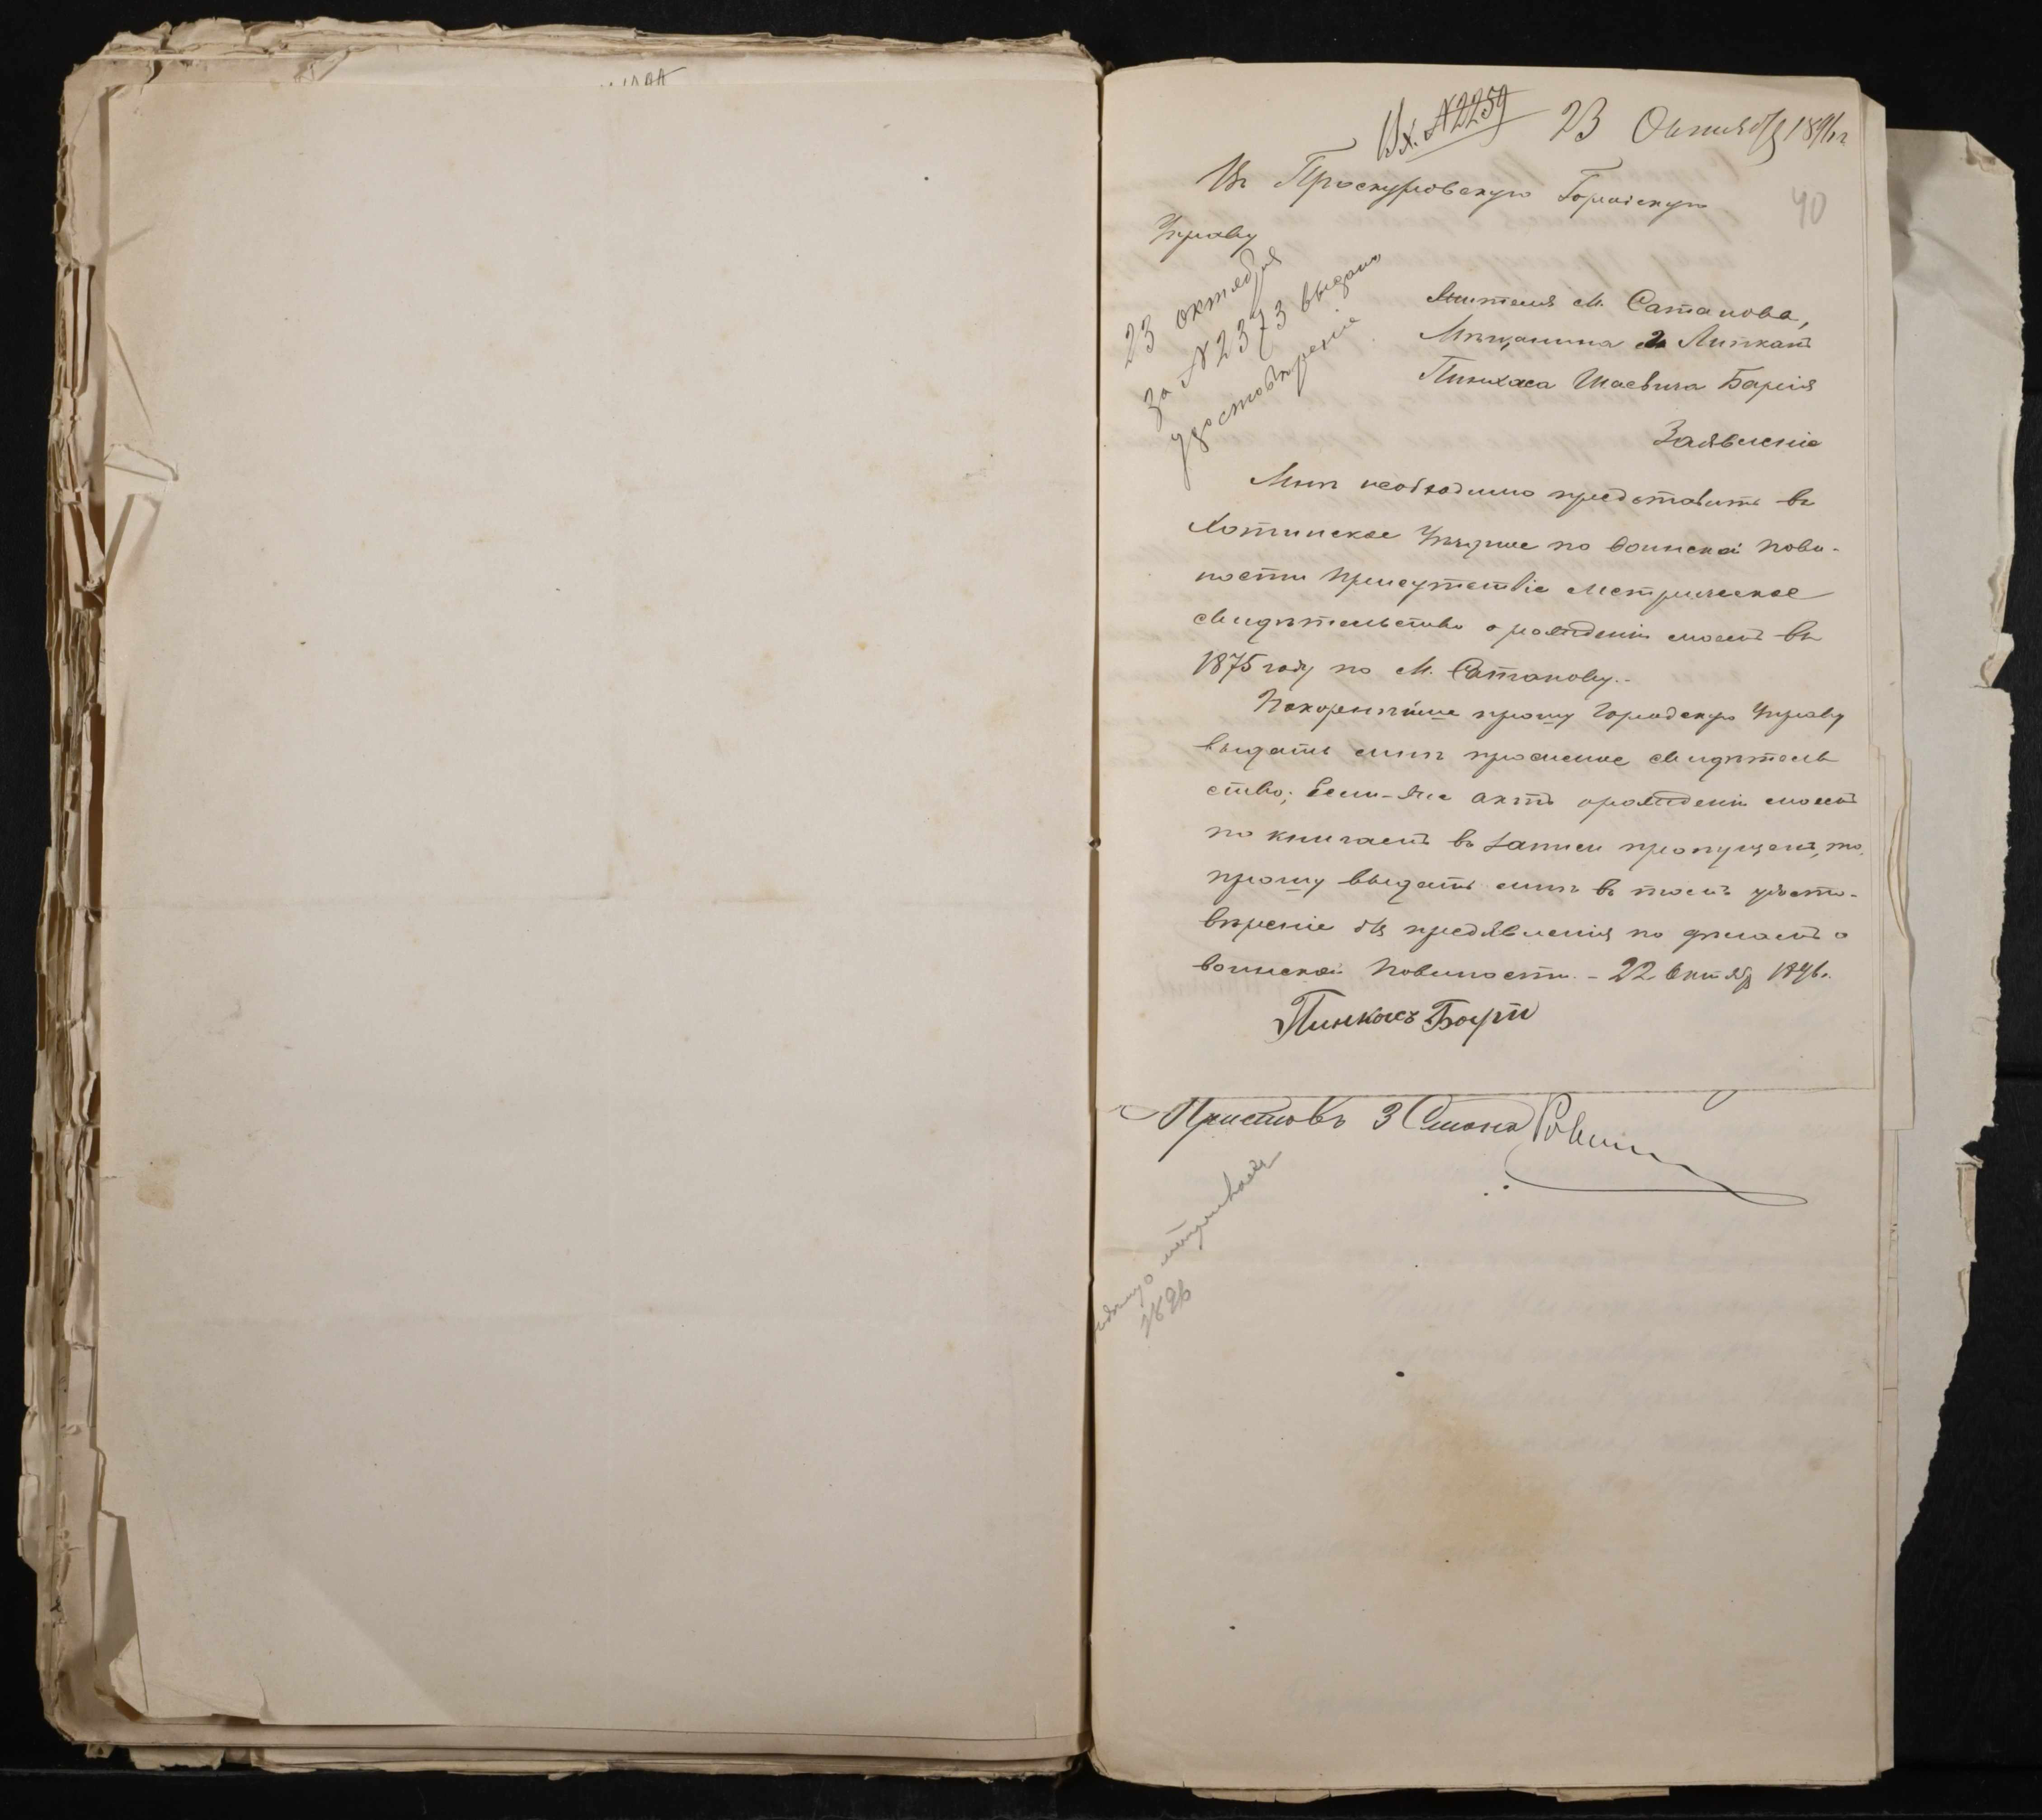 Вх. №2259 23 Октября 1896 г
40
Въ Проскуровскую Городскую
Управу
23 октября
за №2373 выдано
удостовѣреніе
Жителя м. Сатанова,
Мѣщанина м. Липканъ
Пинхаса Шаевича
Заявленіе
Мнѣ необходимо представить въ
Хотинское Уѣздное по воинской пови-
ности присутствіе метрическое
свидѣтельство о рожденіи моемъ въ
1875 году по м. Сатанову.-
Покорнѣйше прошу Городскую Управу
выдать мнѣ просимое свидѣтель
ство; если-же актъ о рожденіи моемъ
по книгамъ въ записи пропущенъ, то
прошу выдать мнѣ въ томъ удосто-
вѣреніе для предявленія по дѣламъ о
воинской повиности. - 22 Октября 1896 г.
Пинхасъ
Приставъ 3 Стана
1896